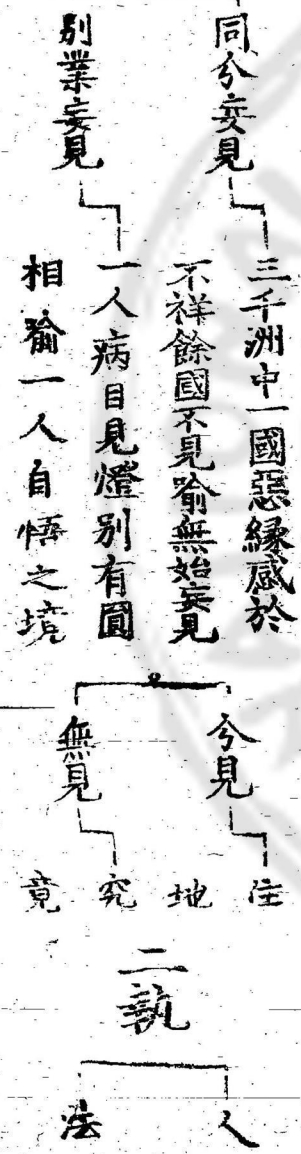 同分妄見
三千洲中一國惡緣感於
不祥餘國不見喻無始妄見
別業妄見
一人病目見燈別有圓
相喻一人自悟之境
今見
住
地
無見
究
竟
二執
人
法